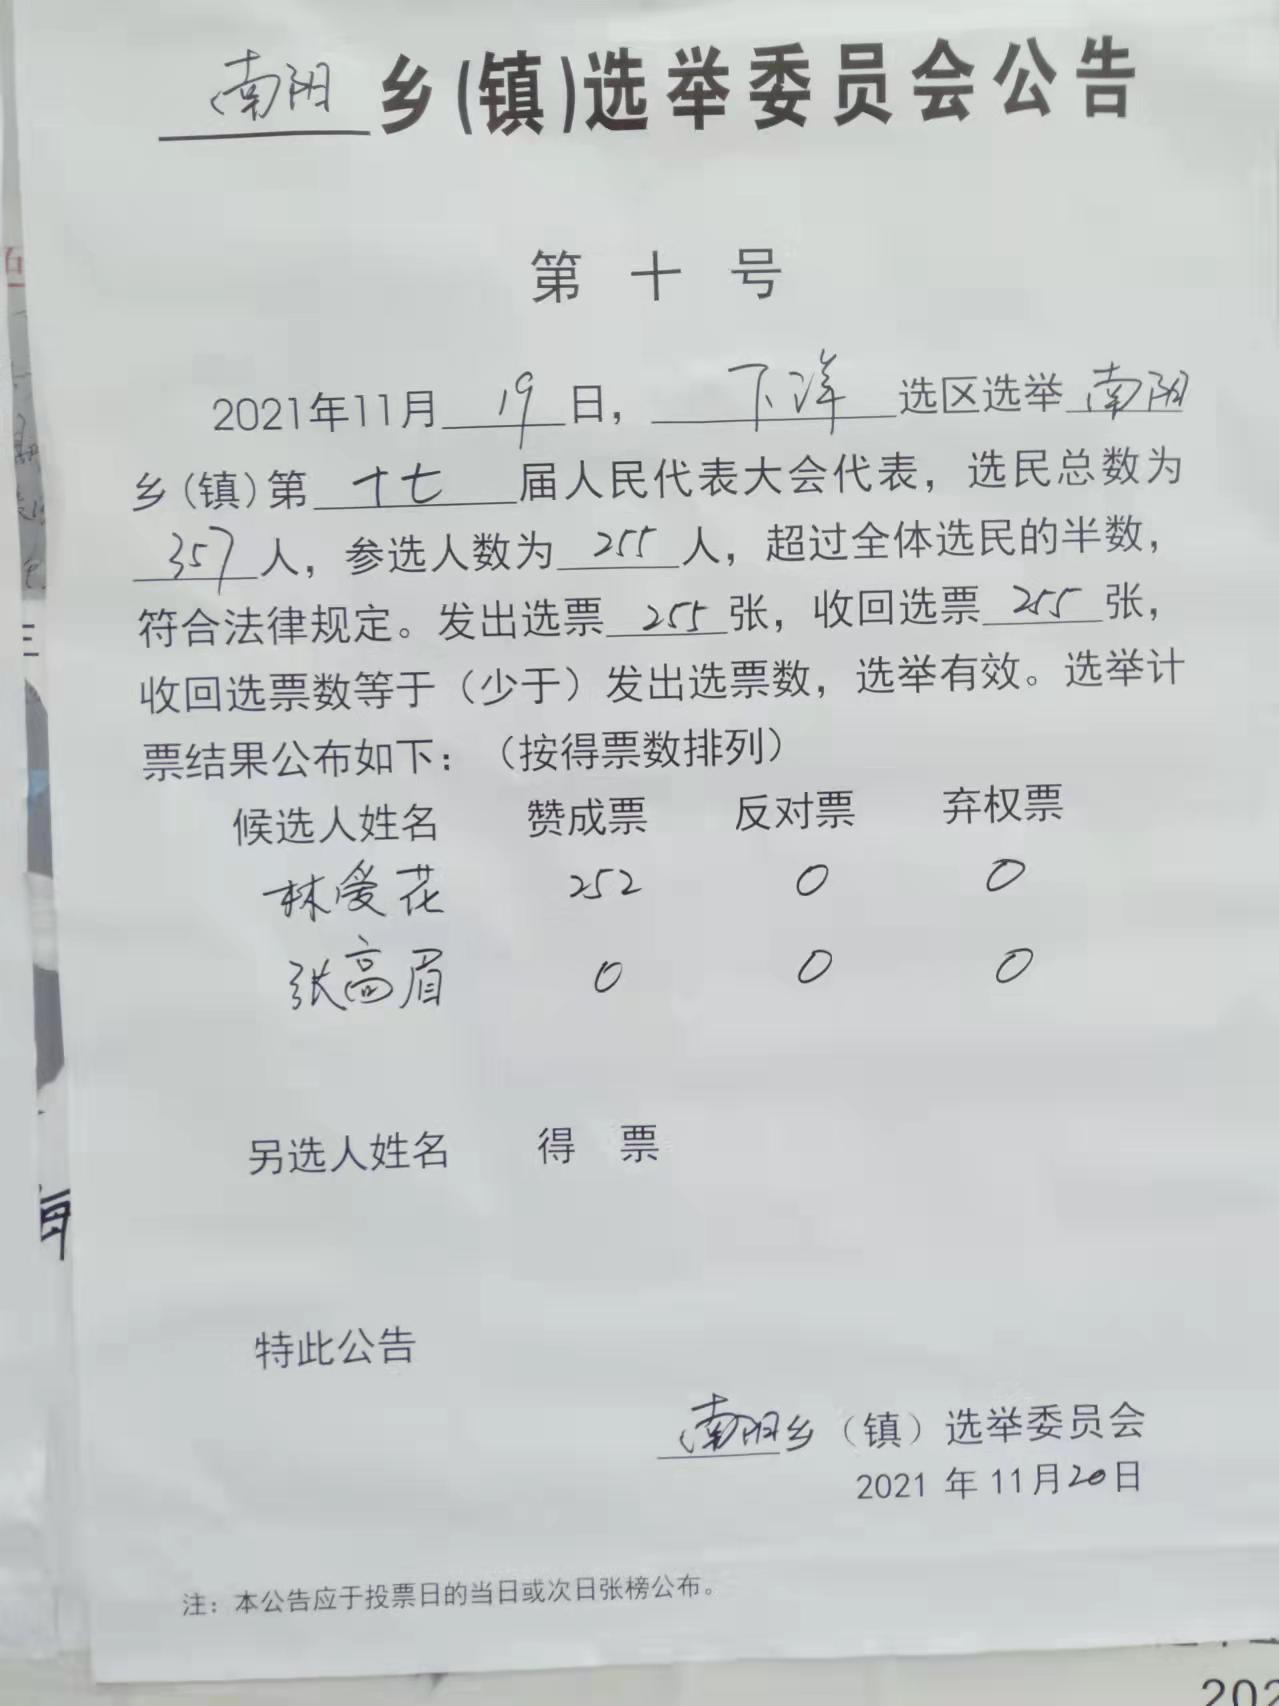 南阳乡(镇)选举委员会公告
第十号
2021年11月19日，下洋选区选举南阳
乡(镇)第十七届人民代表大会代表，选民总数为
357人，参选人数为255人，超过全体选民的半数，
符合法律规定。发出选票255张，收回选票255张，
收回选票数等于（少于）发出选票数，选举有效。选举计
票结果公布如下：（按得票数排列）
候选人姓名 赞成票 反对票 弃权票
林爱花 252 0 0
张高眉 0 0 0
另选人姓名 得票
特此公告
南阳乡（镇）选举委员会
2021年11月20日
注：本公告应于投票日的当日或次日张榜公布。
202